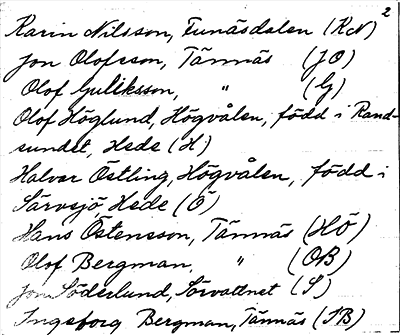 2
Karin Nilsson, Funäsdalen (KN)
Jon Olofsson, Tännäs (JO)
Olof Guliksson, " (G)
Olof Höglund, Högvålen, född i Rand-
sundet, Hede (H)
Halvar Östling, Högvålen, född i
Särvsjö, Hede (Ö)
Hans Östensson, Tännäs (HÖ)
Olof Bergman, " (OB)
Jon Söderlund, Sörvattnet (S)
Ingeborg Bergman, Tännäs (IB)